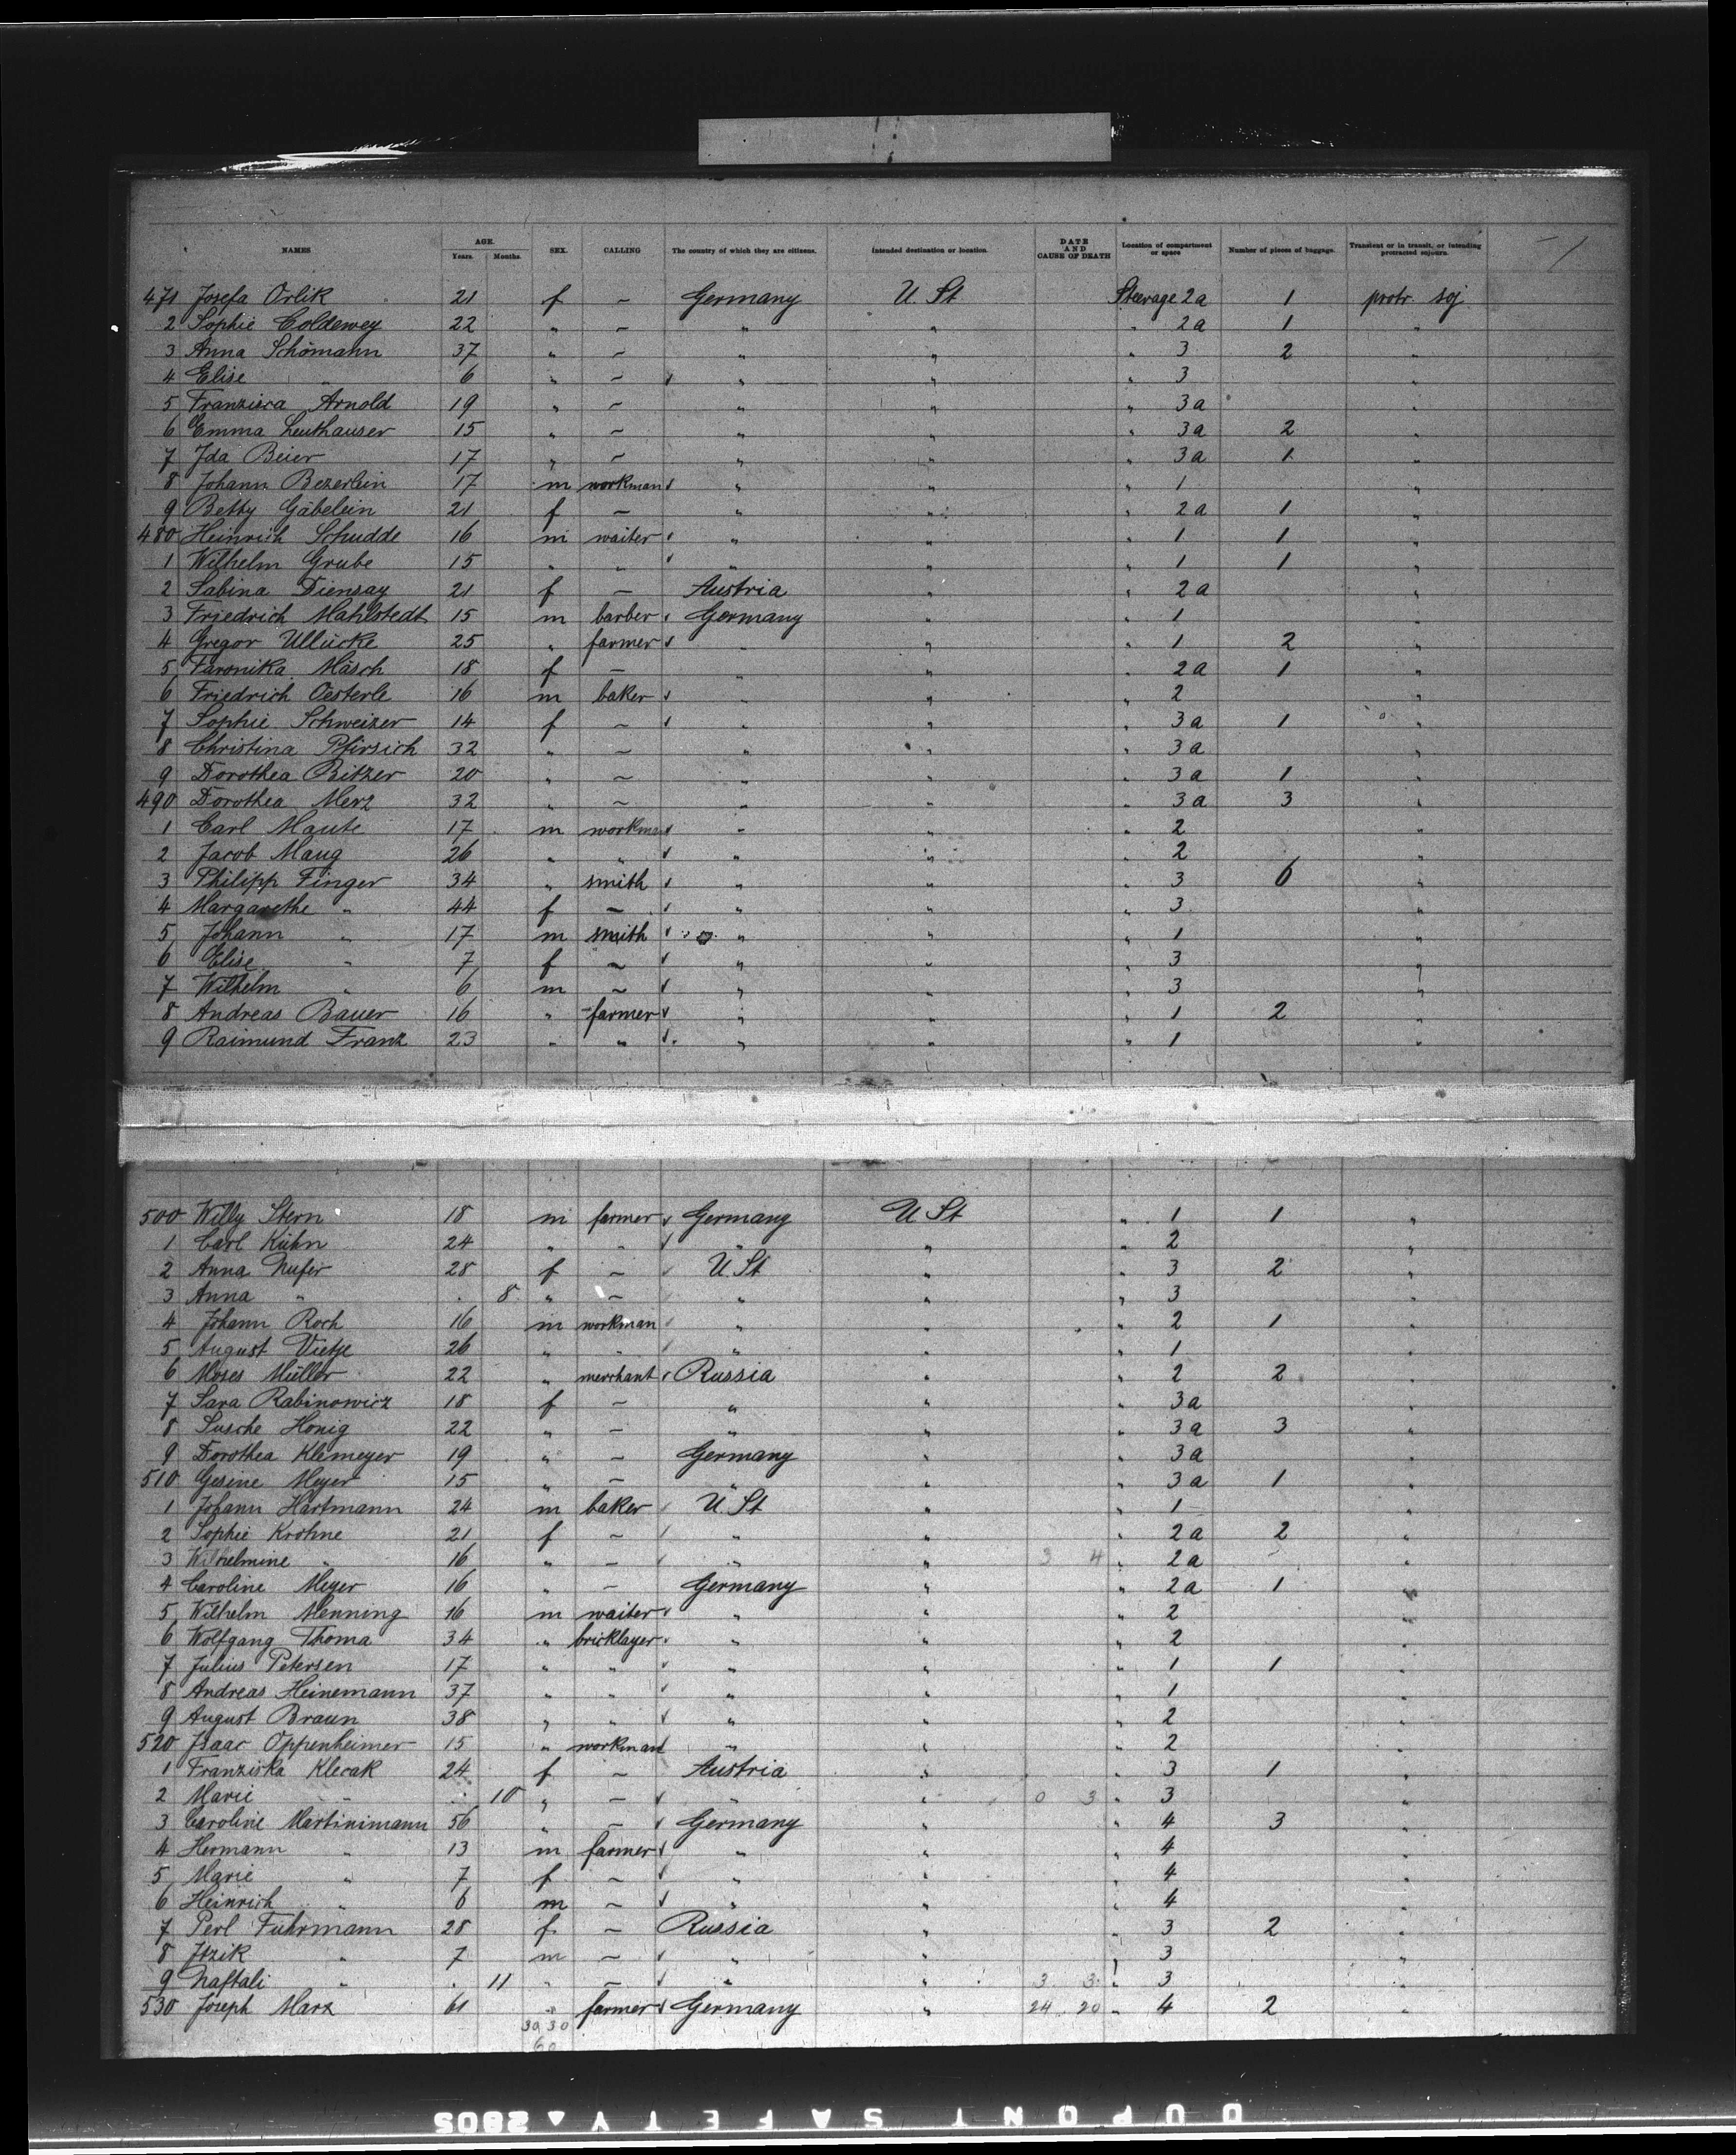 NAMES AGE. Years. Months. SEX. CALLING The country of which they are citizens. Intended destination or location. DATE AND CAUSE OF DEATH Location of compartment or space Number of pieces of baggage. Transient or in transit, or intending protracted sojourn.
471 Josefa Orlik 21 f ~ Germany U. St Steerage 2a 1 protr. soj
2 Sophie Coldewey 22 " ~ " " " 2a 1 "
3 Anna Schömann 37 " ~ " " " 3 2 "
4 Elise " 6 " ~ " " " 3 "
5 Franzisca Arnold 19 " ~ " " " 3a "
6 Emma Leuthauser 15 " ~ " " " 3a 2 "
7 Ida Beier 17 " ~ " " " 3a 1 "
8 Johann Bezerlein 17 m workman " " " 1 "
9 Betty Gäbelein 21 f ~ " " " 2a 1 "
480 Heinrich Schudde 16 m waiter " " " 1 1 "
1 Wilhelm Grube 15 " " " " " 1 1 "
2 Sabina Diensay 21 f — Austria " " 2a "
3 Friedrich Mahlstedt 15 m barber Germany " " 1 "
4 Gregor Ullücke 25 " farmer " " " 1 2 "
5 Faronika Mäsch 18 f — " " " 2a 1 "
6 Friedrich Oesterle 16 m baker " " " 2 "
7 Sophie Schweizer 14 f ~ " " " 3a 1 "
8 Christina Pfirsich 32 " ~ " " " 3a "
9 Dorothea Bitzer 20 " ~ " " " 3a 1 "
490 Dorothea Merz 32 " ~ " " " 3a 3 "
1 Carl Maute 17 m workman " " " 2 "
2 Jacob Maug 26 " " " " " 2 "
3 Philipp Finger 34 " smith " " " 3 6 "
4 Margarethe " 44 f ~ " " " 3 "
5 Johann " 17 m smith " " " 1 "
6 Elise " 7 f ~ " " " 3 "
7 Wilhelm " 6 m ~ " " " 3 "
8 Andreas Bauer 16 " farmer " " " 1 2 "
9 Raimund Franz 23 " " " " " 1 "
500 Willy Stern 18 m farmer Germany U St " 1 1 "
1 Carl Kühn 24 " " " " " 2 "
2 Anna Nufer 28 f ~ U. St " " 3 2 "
3 Anna " 8 " ~ " " " 3 "
4 Johann Roch 16 m workman " " " 2 1 "
5 August Vietje 26 " " " " " 1 "
6 Moses Müller 22 " merchant Russia " " 2 2 "
7 Sara Rabinowicz 18 f ~ " " " 3a "
8 Susche Honig 22 " — " " " 3a 3 "
9 Dorothea Klemeyer 19 " ~ Germany " " 3a "
510 Gesine Meyer 15 " — " " " 3a 1 "
1 Johann Hartmann 24 m baker U. St " " 1 "
2 Sophie Krohne 21 f ~ " " " 2a 2 "
3 Wilhelmine " 16 " — " " 3 4 " 2a "
4 Caroline Meyer 16 " — Germany " " 2a 1 "
5 Wilhelm Menning 16 m waiter " " " 2 "
6 Wolfgang Thoma 34 " bricklayer " " " 2 "
7 Julius Petersen 17 " " " " " 1 1 "
8 Andreas Heinemann 37 " " " " " 1 "
9 August Braun 38 " " " " " 2 "
520 Isaac Oppenheimer 15 " workman " " " 2 "
1 Franziska Klecak 24 f ~ Austria " " 3 1 "
2 Marie " 10 " — " " 0 3 " 3 "
3 Caroline Martinimann 56 " — Germany " " 4 3 "
4 Hermann " 13 m farmer " " " 4 "
5 Marie " 7 f ~ " " " 4 "
6 Heinrich " 6 m ~ " " " 4 "
7 Perl Fuhrmann 28 f — Russia " " 3 2 "
8 Itzik " 7 m ~ " " " 3 "
9 Naftali " 11 " — " " 3 3 " 3 "
530 Joseph Marx 61 " farmer Germany " 24 20 " 4 2 "
30 30
60
DUPONT SAFETY 2805